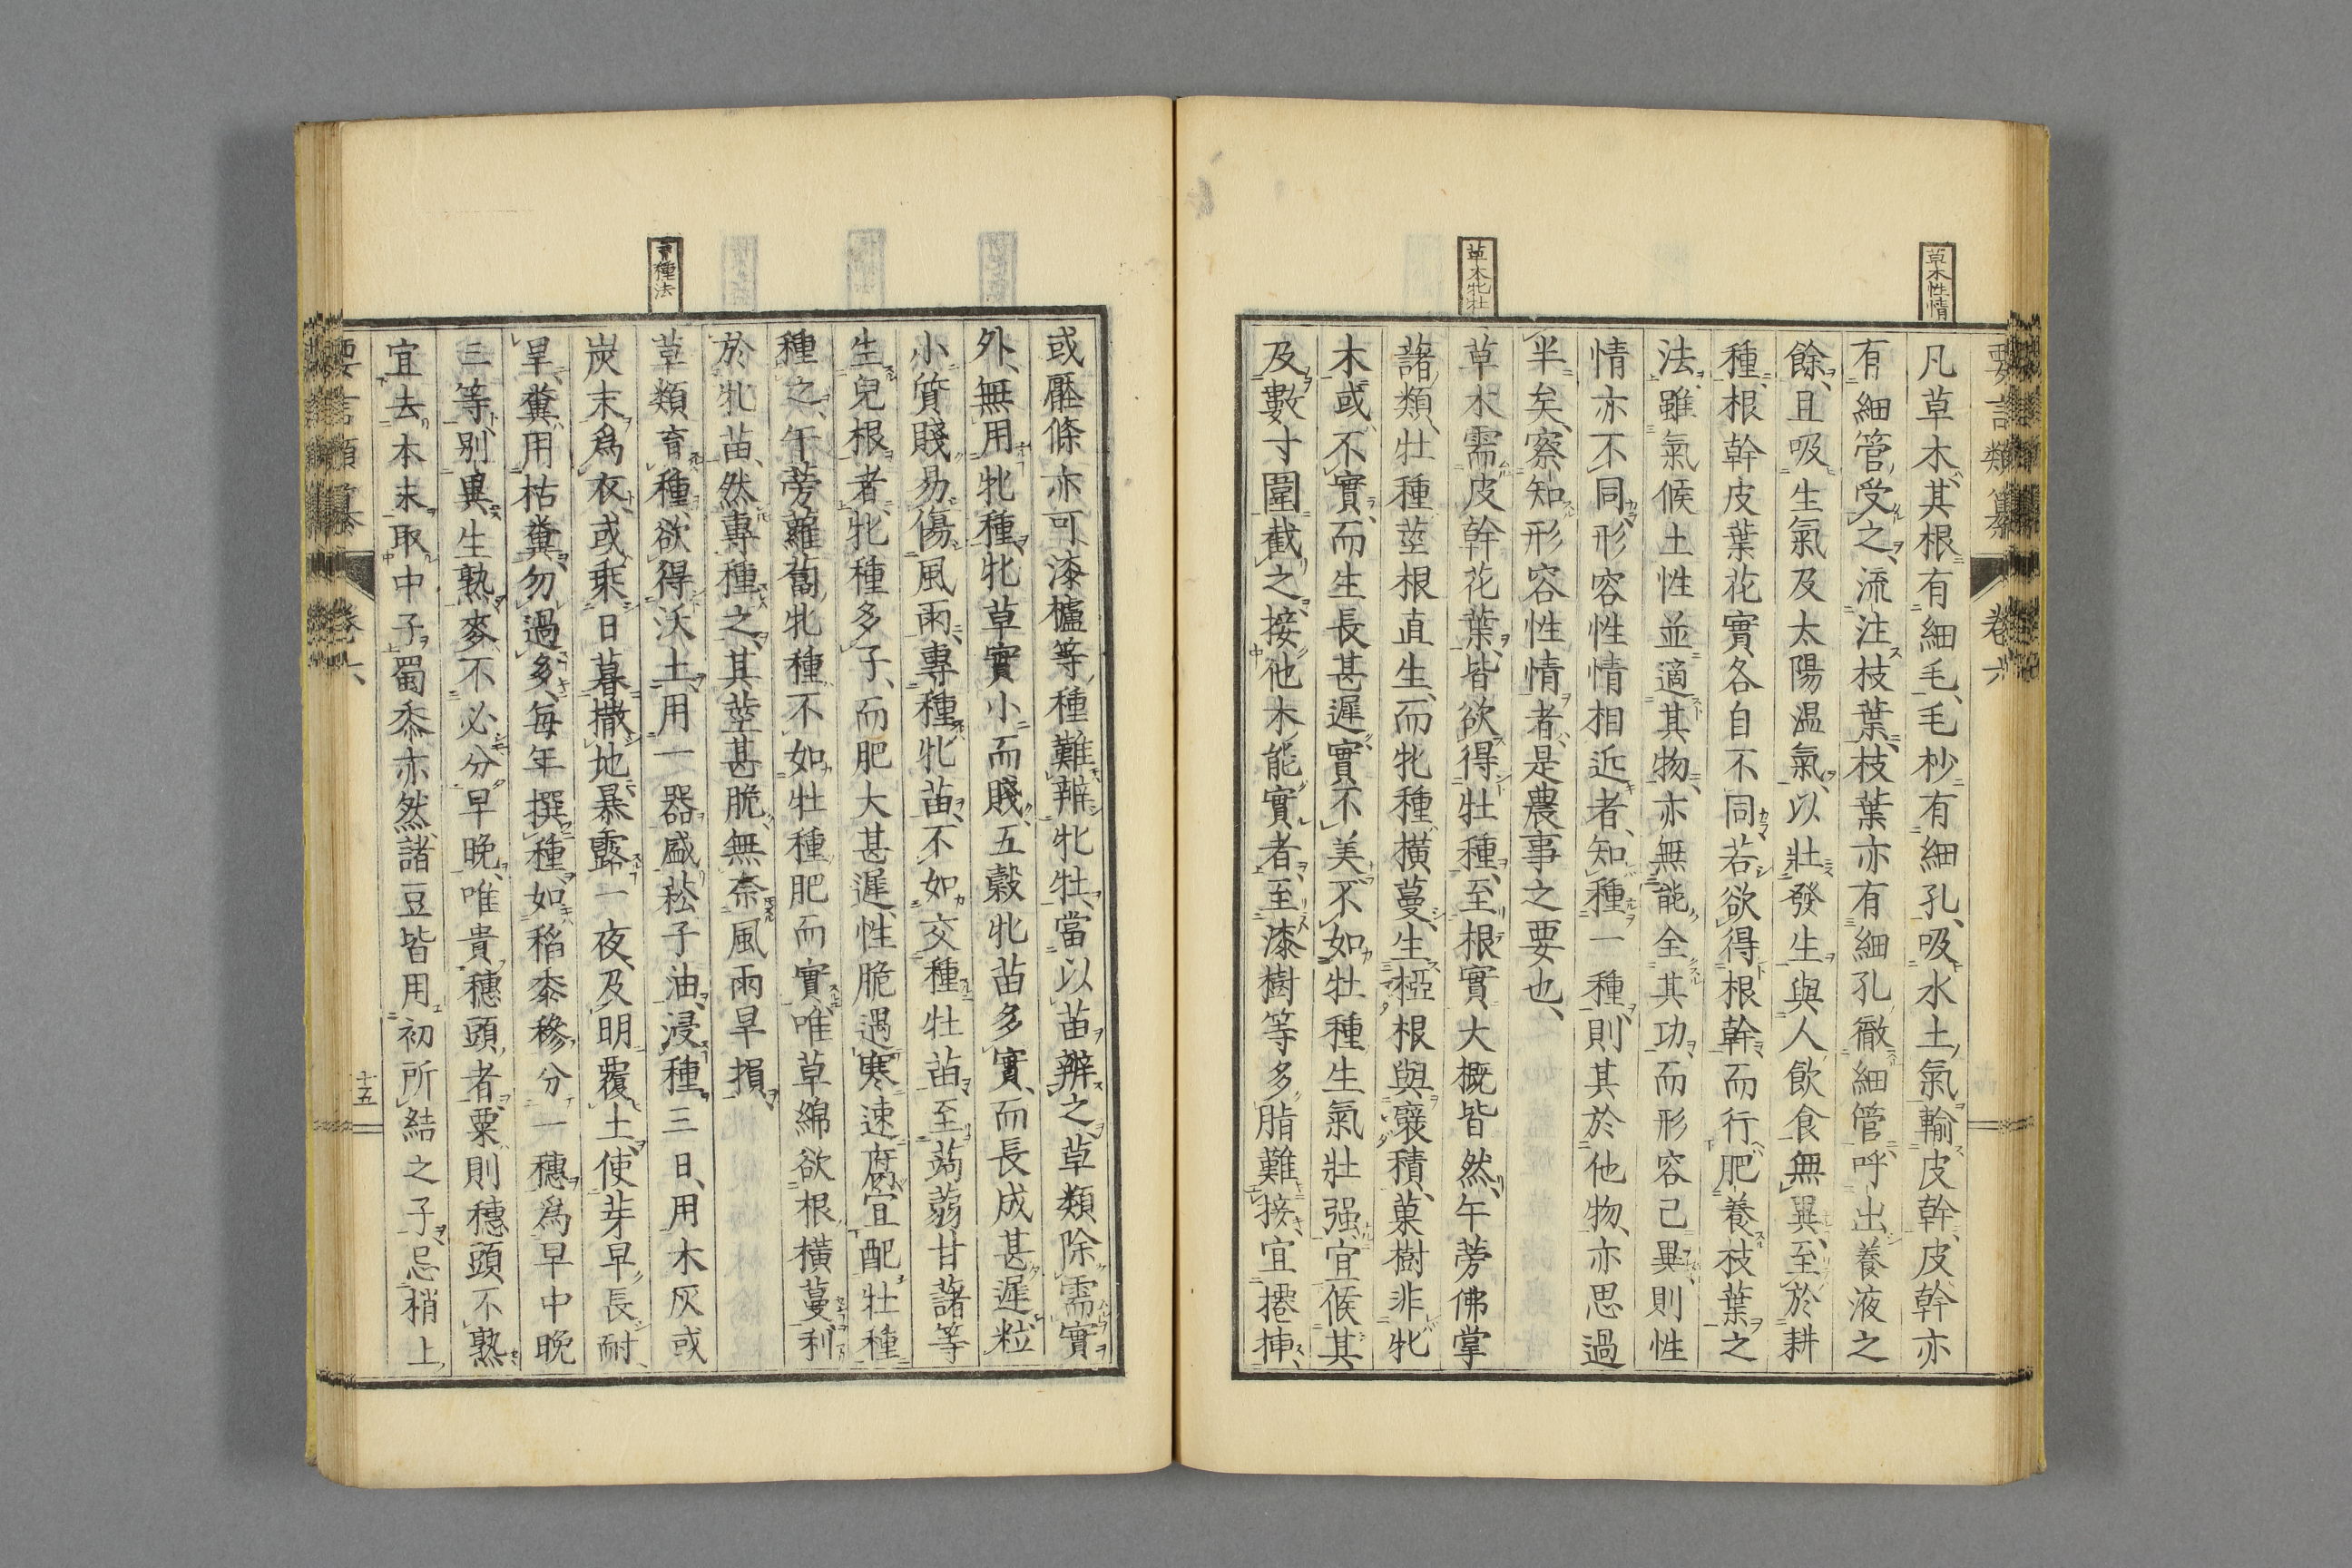 草木性情
凡草木、其根有細毛、毛杪有細孔、吸水土氣、輸皮幹、皮幹亦
有細管、受之、流注枝葉、枝葉亦有細孔、徹細管、呼出養液之
餘、且吸生氣及太陽温氣、以壯發生、與人飲食無異、至於耕
種、根幹皮葉花實、各自不同、若欲得根幹、而行肥養枝葉之
法、雖氣候土性並適其物、亦無能全其功、而形容己異、則性
情亦不同、形容性情相近者、知種一種、則其於他物、亦思過
半矣、察知形容性情者、是農事之要也、
草木牝牡
草木需皮幹花葉、皆欲得牡種、至根實、大概皆然、午蒡佛掌
藷類、牡種莖根直生、而牝種橫蔓、生椏根與襞積、菓樹非牝
木、或不實、而生長甚遲、實不美、不如牡種生氣壯强、宜候其
及數寸圍、截之、接他木能實者、至漆樹等多脂難接、宜捲挿、
或壓條亦可、漆櫨等種、難辨牝牡、當以苗辨之、草類除需實
外、無用牝種、牝草實小而賤、五穀牝苗多實、而長成甚遲、粒
小質賤、易傷風雨、專種牝苗、不如交種牡苗、至蒟蒻甘藷等
生兒根者、牝種多子、而肥大甚遲、性脆遇寒速腐、宜配牡種
種之、午蒡蘿蔔、牝種不如牡種肥而實、唯草綿欲根橫蔓、利
於牝苗、然專種之、其莖甚脆、無奈風雨旱損、
育種法
草類育種、欲得沃土、用一器盛菘子油、浸種三日、用木灰或
炭末爲衣、或乘日暮撒地、暴露一夜、及明覆土、使芽早長耐
旱、糞用枯糞、勿過多、每年撰種、如稻黍穇、分一穗爲早中晩
三等、別異生熟、麥不必分早晩、唯貴穗頭者、粟則穗頭不熟
宜去本末取中子、蜀黍亦然、諸豆皆用初所結之子、忌梢上
要言類纂
卷六
十五